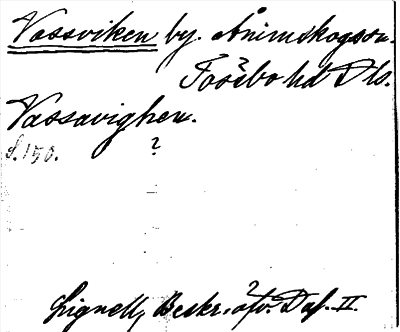 Vassviken by. Ånimskogssn.
Tössbo hd Dls.
Vassavighen.
S. 150. ?
Lignell, Beskr. öfv. Dal. II.